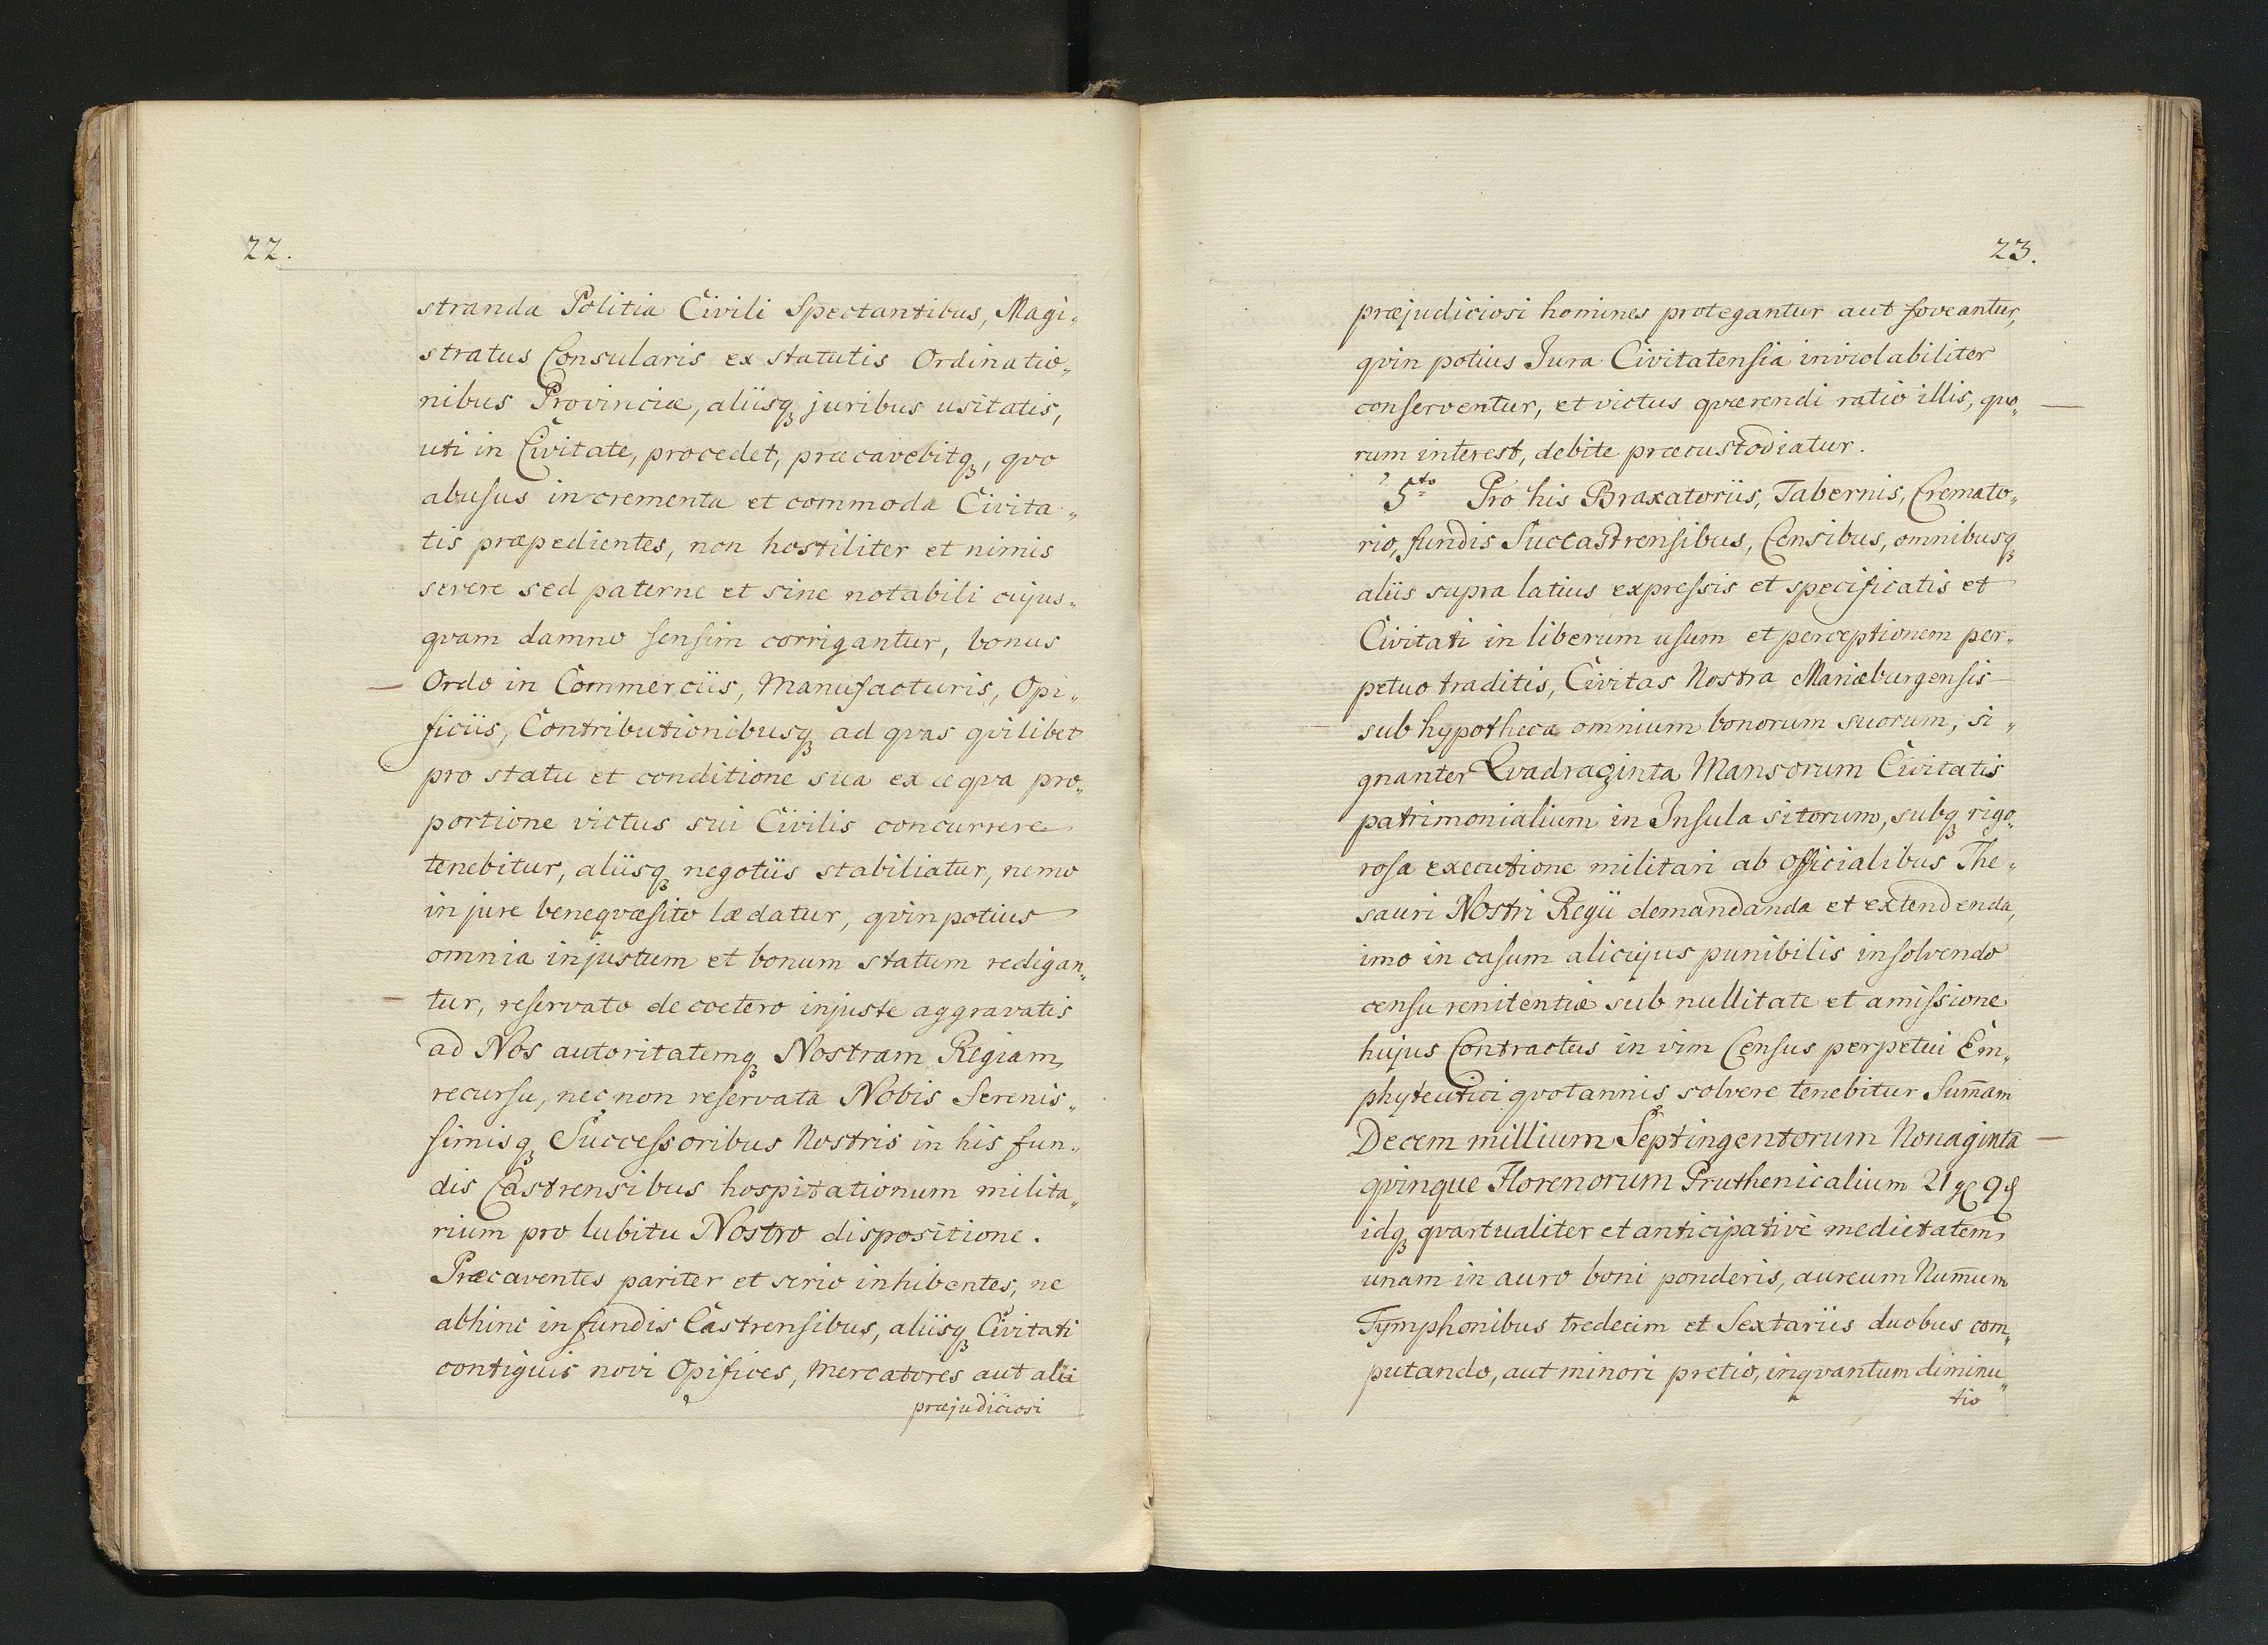 22.
stranda Politia Civili Spectantibus, Magi„
stratus Consularis ex statutis Ordinatio„
nibus Provinciæ, aliisqꝫ juribus usitatis,
uti in Civitate, procedet, præcavebitqꝫ, qvo
abusus incrementa et commoda Civita„
tis præpedientes, non hostiliter et nimis
severe sed paterne et sine notabili cujus„
qvam damno sensim corrigantur, bonus
Ordo in Commerciis, Manufacturis, Opi„
ficiis, Contributionibusqꝫ ad qvas qvilibet
pro statu et conditione sua ex æqva pro„
portione victus sui Civilis concurrere
tenebitur, aliisqꝫ negotiis stabiliatur, nemo
in jure beneqvæsito lædatur, qvin potius
omnia in justum et bonum statum redigan„
tur, reservato de coetero injuste aggravatis
ad Nos autoritatemqꝫ Nostram Regiam
recursu, nec non reservata Nobis Serenis„
simisqꝫ Successoribus Nostris in his fun„
dis Castrensibus hospitationum milita„
rium pro lubitu Nostro dispositione.
Præcaventes pariter et serio inhibentes, ne
abhinc in fundis Castrensibus, aliisqꝫ Civitati
contiguis novi Opifices, Mercatores aut alii
præjudiciosi
23.
præjudiciosi homines protegantur aut foveantur,
qvin potius Jura Civitatensia inviolabiliter
conserventur, et victus qværendi ratio illis, quo„
rum interest, debite præcustodiatur.
5to Pro his Braxatoriis, Tabernis, Cremato„
rio, fundis Succastrensibus, Censibus, omnibusqꝫ
aliis supra latius expressis et specificatis et
Civitati in liberum usum et perceptionem per„
petuo traditis, Civitas Nostra Mariæburgensis
sub hypotheca omnium bonorum suorum, si„
gnanter Qvadraginta Mansorum Civitatis
patrimonialium in Insula sitorum, subqꝫ rigo„
rosa executione militari ab Officialibus The„
sauri Nostri Regii demandanda et extendenda,
imo in casum alicujus punibilis in solvendo
censu renitentiæ sub nullitate et amissione
hujus Contractus in vim Census perpetui Em„
phyteutici qvotannis solvere tenebitur Sum̄am
Decem millium Septingentorum Nonaginta
qvinque Florenorum Pruthenicalium 21 gl 9 ₰
idqꝫ qvartualiter et anticipative medietatem
unam in auro boni ponderis, aureum Num̄um
Tymphonibus tredecim et Sextariis duobus com„
putando, aut minori pretio, inqvantum diminu„
tio